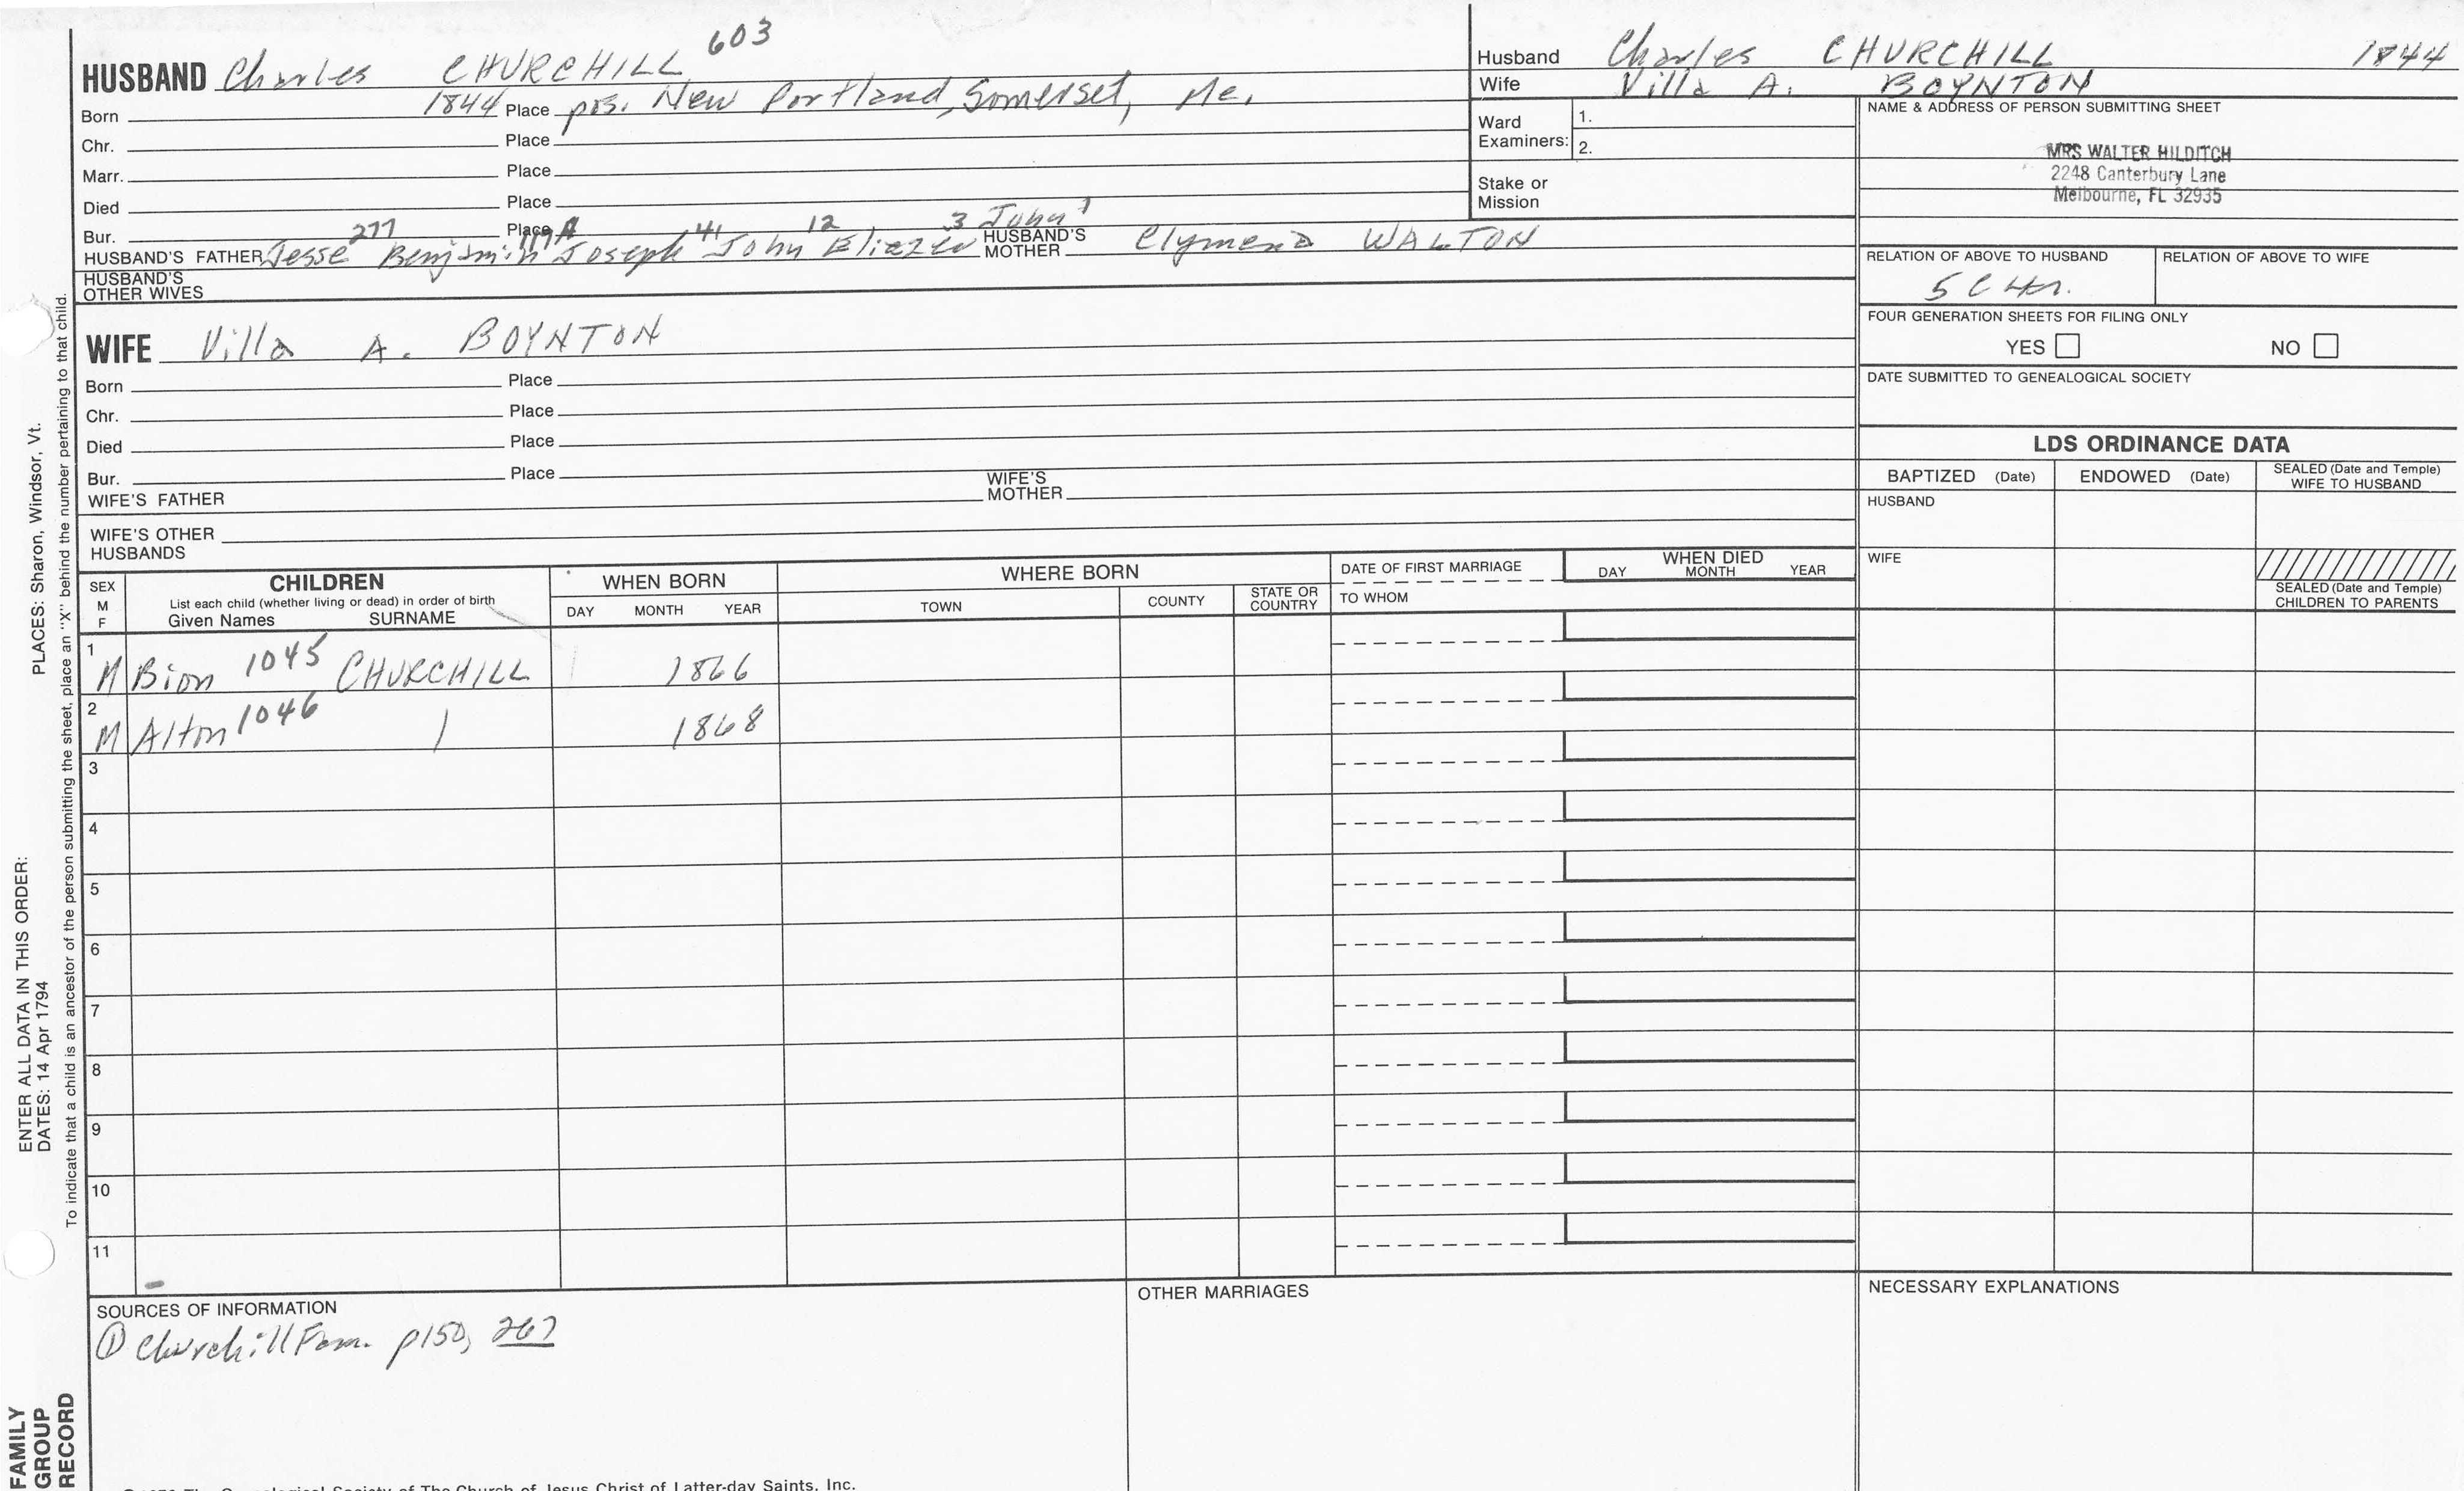 HUSBAND Charles CHURCHILL 603
Born 1844 Place pos. New Portland, Somerset, Me.
Chr. Place
Marr. Place
Died Place
Bur. Place
HUSBAND'S FATHER Jesse 277 Benjamin 119A Joseph 41 John 12 Eliezer 3 John 1 HUSBAND'S MOTHER Clymena WALTON
HUSBAND'S OTHER WIVES
WIFE Villa A. BOYNTON
Born Place
Chr. Place
Died Place
Bur. Place
WIFE'S FATHER WIFE'S MOTHER
WIFE'S OTHER HUSBANDS
Husband Charles CHURCHILL 1844
Wife Villa A. BOYNTON
Ward Examiners: 1. 2.
Stake or Mission
NAME & ADDRESS OF PERSON SUBMITTING SHEET
MRS WALTER HILDITCH
2248 Canterbury Lane
Melbourne, FL 32935
RELATION OF ABOVE TO HUSBAND RELATION OF ABOVE TO WIFE
5 C 4r.
FOUR GENERATION SHEETS FOR FILING ONLY
YES NO
DATE SUBMITTED TO GENEALOGICAL SOCIETY
LDS ORDINANCE DATA
BAPTIZED (Date) ENDOWED (Date) SEALED (Date and Temple) WIFE TO HUSBAND
HUSBAND
WIFE
SEALED (Date and Temple) CHILDREN TO PARENTS
SEX M F CHILDREN WHEN BORN WHERE BORN DATE OF FIRST MARRIAGE WHEN DIED
List each child (whether living or dead) in order of birth
Given Names SURNAME DAY MONTH YEAR TOWN COUNTY STATE OR COUNTRY TO WHOM DAY MONTH YEAR
1 M Bion 1045 CHURCHILL 1866
2 M Alton 1046 1868
3
4
5
6
7
8
9
10
11
SOURCES OF INFORMATION
① Churchill Fam. p150, 267
OTHER MARRIAGES
NECESSARY EXPLANATIONS
ENTER ALL DATA IN THIS ORDER:
DATES: 14 Apr 1794 PLACES: Sharon, Windsor, Vt.
To indicate that a child is an ancestor of the person submitting the sheet, place an "X" behind the number pertaining to that child.
FAMILY GROUP RECORD
The Genealogical Society of The Church of Jesus Christ of Latter-day Saints, Inc.